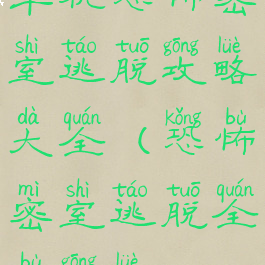 shì táo tuō gōng lüè
室逃脱攻略
dà quán kǒng bù
大全（恐怖
mì shì táo tuō quán
密室逃脱全
bù gōng lüè